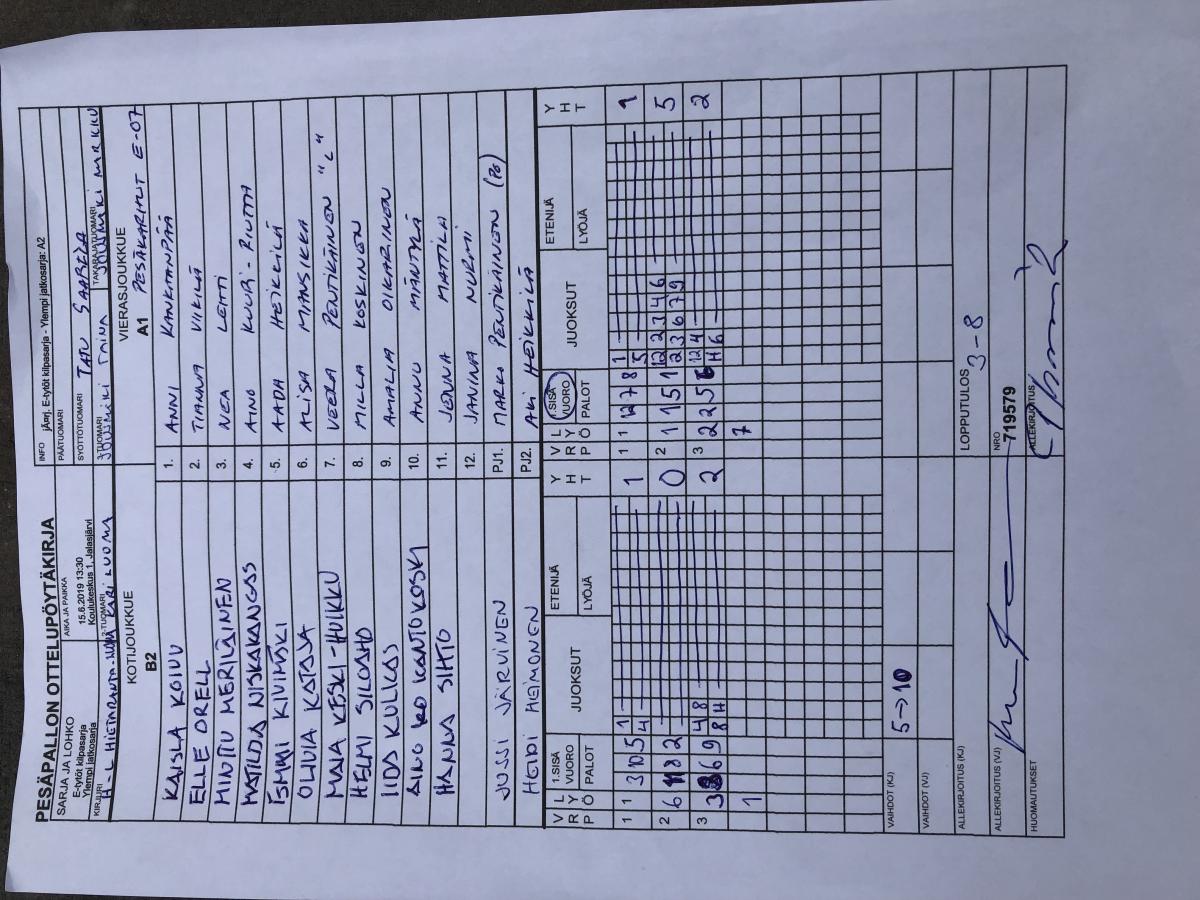 PESÄPALLON OTTELUPÖYTÄKIRJA
SARJA JA LOHKO
E-tytöt kilpasarja
Ylempi jatkosarja
AIKA JA PAIKKA
15.6.2019 13:30
Koulukeskus 1, Jalasjärvi
INFO jÄrrj. E-tytöt kilpasarja - Ylempi jatkosarja: A2
PÄÄTUOMARI
SYÖTTÖTUOMARI TATU SAARELA
KIRJURI
2-TUOMARI KARI LUOMA
3-TUOMARI
TAKARAJATUOMARI
KOTIJOUKKUE
B2
VIERASJOUKKUE
A1 PESÄKARHUT E-07
KAISLA KOIVU 1. ANNI KANKAANPÄÄ
ELLE ORELL 2. VIIKILÄ
MINTTU MERILÄINEN 3. NEA LEHTI
MATILDA NISKAKANGAS 4. AINO
KIVIMÄKI 5. AADA HEIKKILÄ
OLIVIA KATAJA 6. ALISA MANSIKKA
MAIJA KESKI-HUIKKU 7. VEERA PENTIKÄINEN "L"
HELMI SILOAHO 8. MILLA KOSKINEN
IIDA KULKAS 9. AMALIA OIKARINEN
AINO KANTOKOSKI 10. ANNU MÄNTYLÄ
HANNA SIHTO 11. JENNA MATTILA
12. JANINA NURMI
JUSSI JÄRVINEN PJ1. MARKO PENTIKÄINEN (PO)
HEIDI HEIMONEN PJ2. AKI HEIKKILÄ
V R P L Y Ö 1.SISÄ VUORO PALOT JUOKSUT ETENIJÄ LYÖJÄ Y H T V R P L Y Ö 1.SISÄ VUORO PALOT JUOKSUT ETENIJÄ LYÖJÄ Y H T
1 1 3 10 5 1 4 1 1 1 12 7 8 1 5 1
2 6 8 2 0 2 1 1 5 1 12 2 3 4 6 1 2 3 6 7 9 5
3 3 6 9 4 8 8 H 2 3 2 2 5 12 4 H 6 2
1 7
VAIHDOT (KJ) 5→10
VAIHDOT (VJ)
ALLEKIRJOITUS (KJ) LOPPUTULOS 3-8
ALLEKIRJOITUS (VJ) NRO 719579
HUOMAUTUKSET ALLEKIRJOITUS